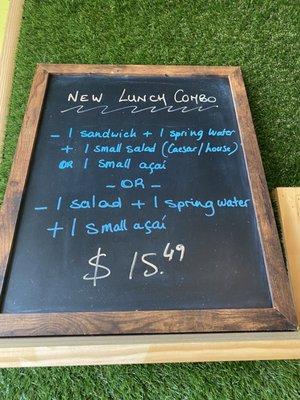 New Lunch Combo
- 1 sandwich + 1 spring water
+ 1 small salad (Caesar/house)
OR 1 small açaí
- OR -
- 1 salad + 1 spring water
+ 1 small açaí
$ 15.49